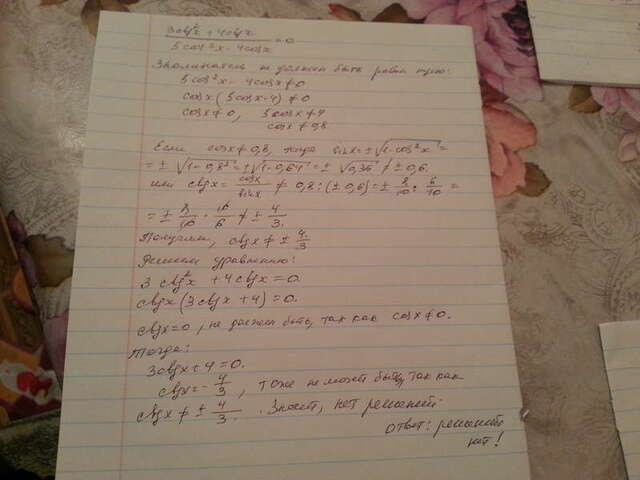 3ctg²x + 4ctgx
―――――――― = 0
5cos²x - 4cosx
Знаменатель не должен быть равен нулю:
5cos²x - 4cosx ≠ 0
cosx(5cosx-4) ≠ 0
cosx ≠ 0, 5cosx ≠ 4
cosx ≠ 0,8
Если cosx ≠ 0,8, тогда sinx = ±√1-cos²x =
= ±√1-0,8² = ±√1-0,64 = ±√0,36 ≠ ±0,6.
или ctgx = cosx/sinx ≠ 0,8:(±0,6) = ± 8/10 : 6/10 =
= ± 8/10 · 10/6 ≠ ± 4/3.
Получили, ctgx ≠ ± 4/3
Решаем уравнению:
3ctg²x + 4ctgx = 0.
ctgx(3ctgx + 4) = 0.
ctgx = 0, не должен быть, так как cosx ≠ 0.
Тогда:
3ctgx + 4 = 0.
ctgx = - 4/3, тоже не может быть, так как
ctgx ≠ ± 4/3. Значит, нет решений.
Ответ: решений
нет!